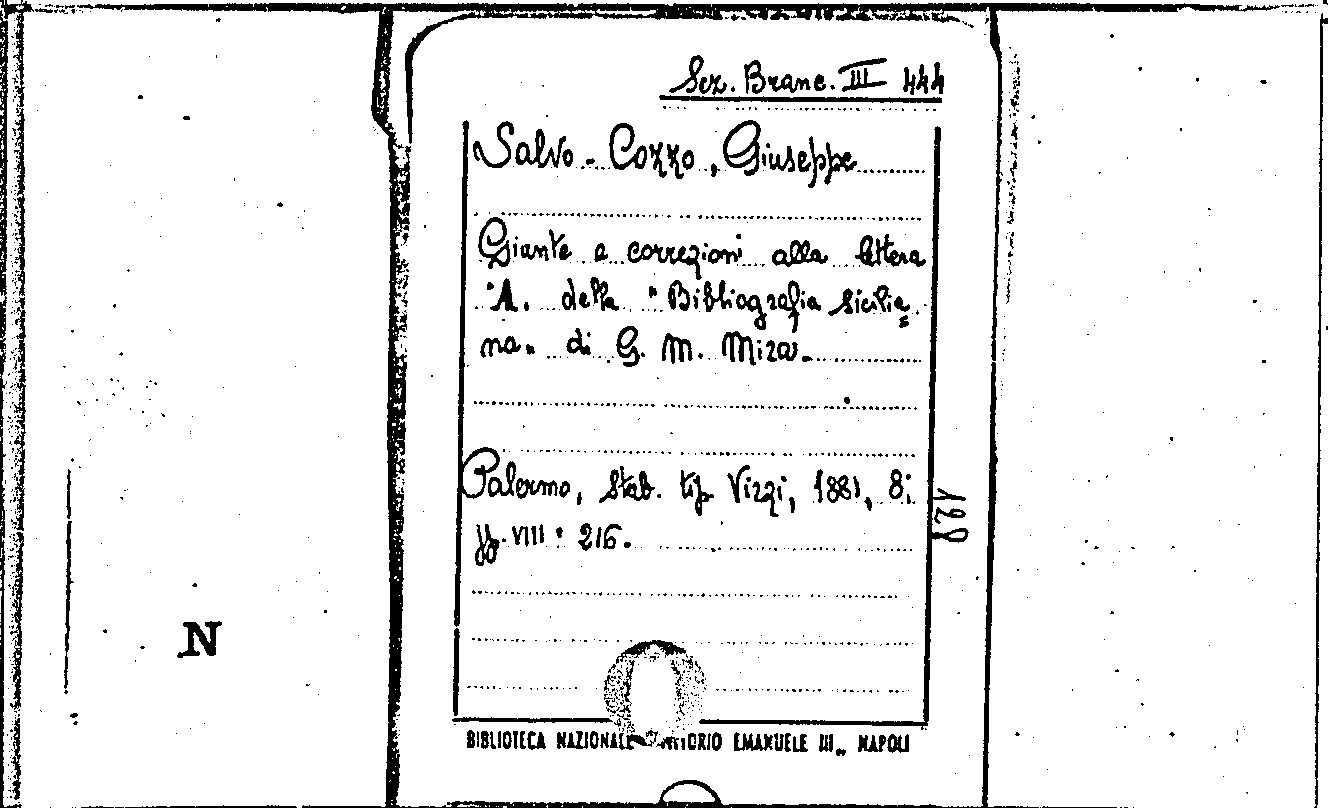 Sez. Branc. III 444
Salvo-Cozzo, Giuseppe
Giunte e correzioni alla lettera
"A. della "Bibliografia sicilia=
na" di G. M. Mira.
Palermo, Stab. tip. Vizzi, 1881, 8;
pp. VIII + 216.
N
BIBLIOTECA NAZIONALE VITTORIO EMANUELE III„ NAPOLI